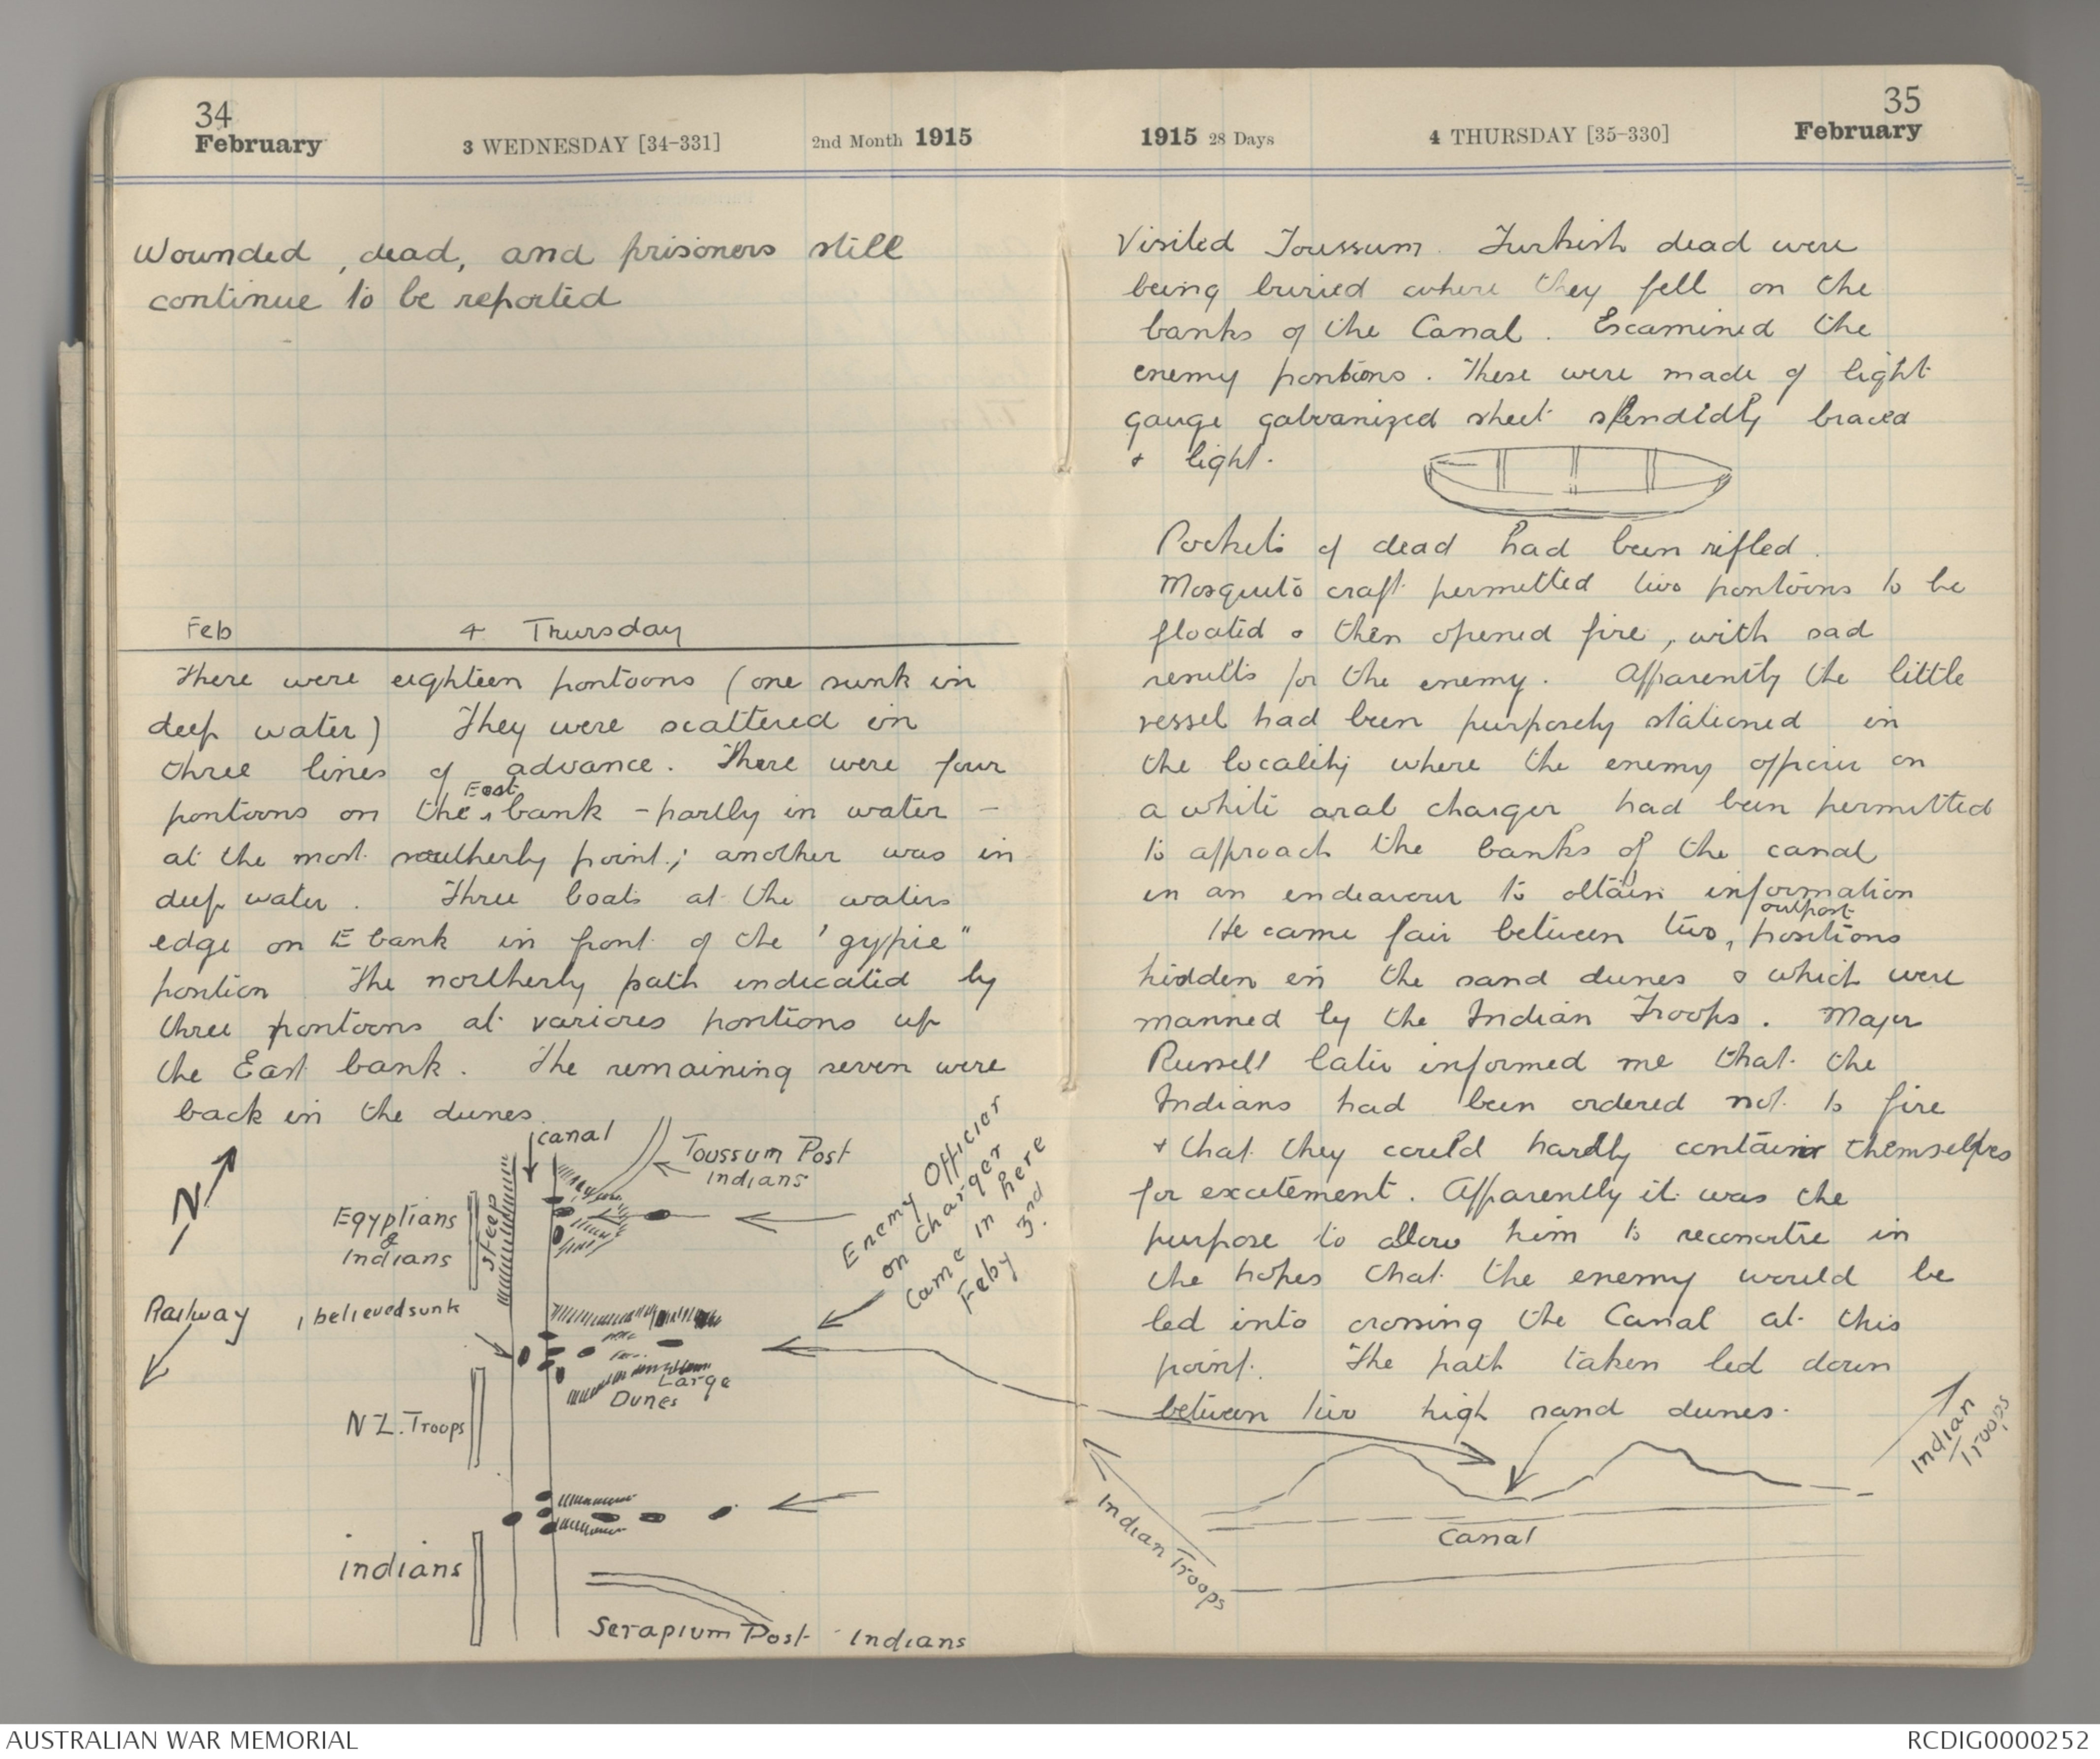 34
February
3 WEDNESDAY [34-331]
2nd Month 1915
Wounded, dead, and prisoners still
continue to be reported
Feb 4 Thursday
There were eighteen pontoons (one sunk in
deep water) They were scattered in
three lines of advance. There were four
East
pontoons on the bank - partly in water -
at the most southerly point; another was in
deep water. Three boats at the waters
edge on E bank in front of the 'gyppie"
position The northerly path indicated by
three pontoons at various positions up
the East bank. The remaining seven were
back in the dunes.
canal
Toussum Post
Indians
N
Egyptians
&
Indians
steep
Enemy Officier
on Charger
came in here
Feby 3rd
Railway
1 believed sunk
Large
Dunes
NZ. Troops
indians
Serapium Post Indians
35
1915 28 Days
4 THURSDAY [35-330]
February
Visited Toussum. Turkish dead were
being buried where they fell on the
banks of the Canal. Examined the
enemy pontoons. These were made of light
gauge galvanized sheet splendidly braced
& light.
Pockets of dead had been rifled.
Mosquito craft permitted two pontoons to be
floated & then opened fire, with sad
results for the enemy. Apparently the little
vessel had been purposely stationed in
the locality where the enemy officer on
a white arab charger had been permitted
to approach the banks of the canal
in an endeavour to obtain information
outpost
He came fair between two, positions
hidden in the sand dunes & which were
manned by the Indian Troops. Major
Russell later informed me that the
Indians had been ordered not to fire
& that they could hardly contain themselves
for excitement. Apparently it was the
purpose to allow him to reconoitre in
the hopes that the enemy would be
led into crossing the Canal at this
point. The path taken led down
between two high sand dunes.
Indian
Troops
Indian Troops
Canal
AUSTRALIAN WAR MEMORIAL
RCDIG0000252